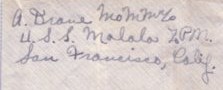 A. Deane MoMM 2/c
U.S.S. Malala F.P.M.
San Francisco, Calif.